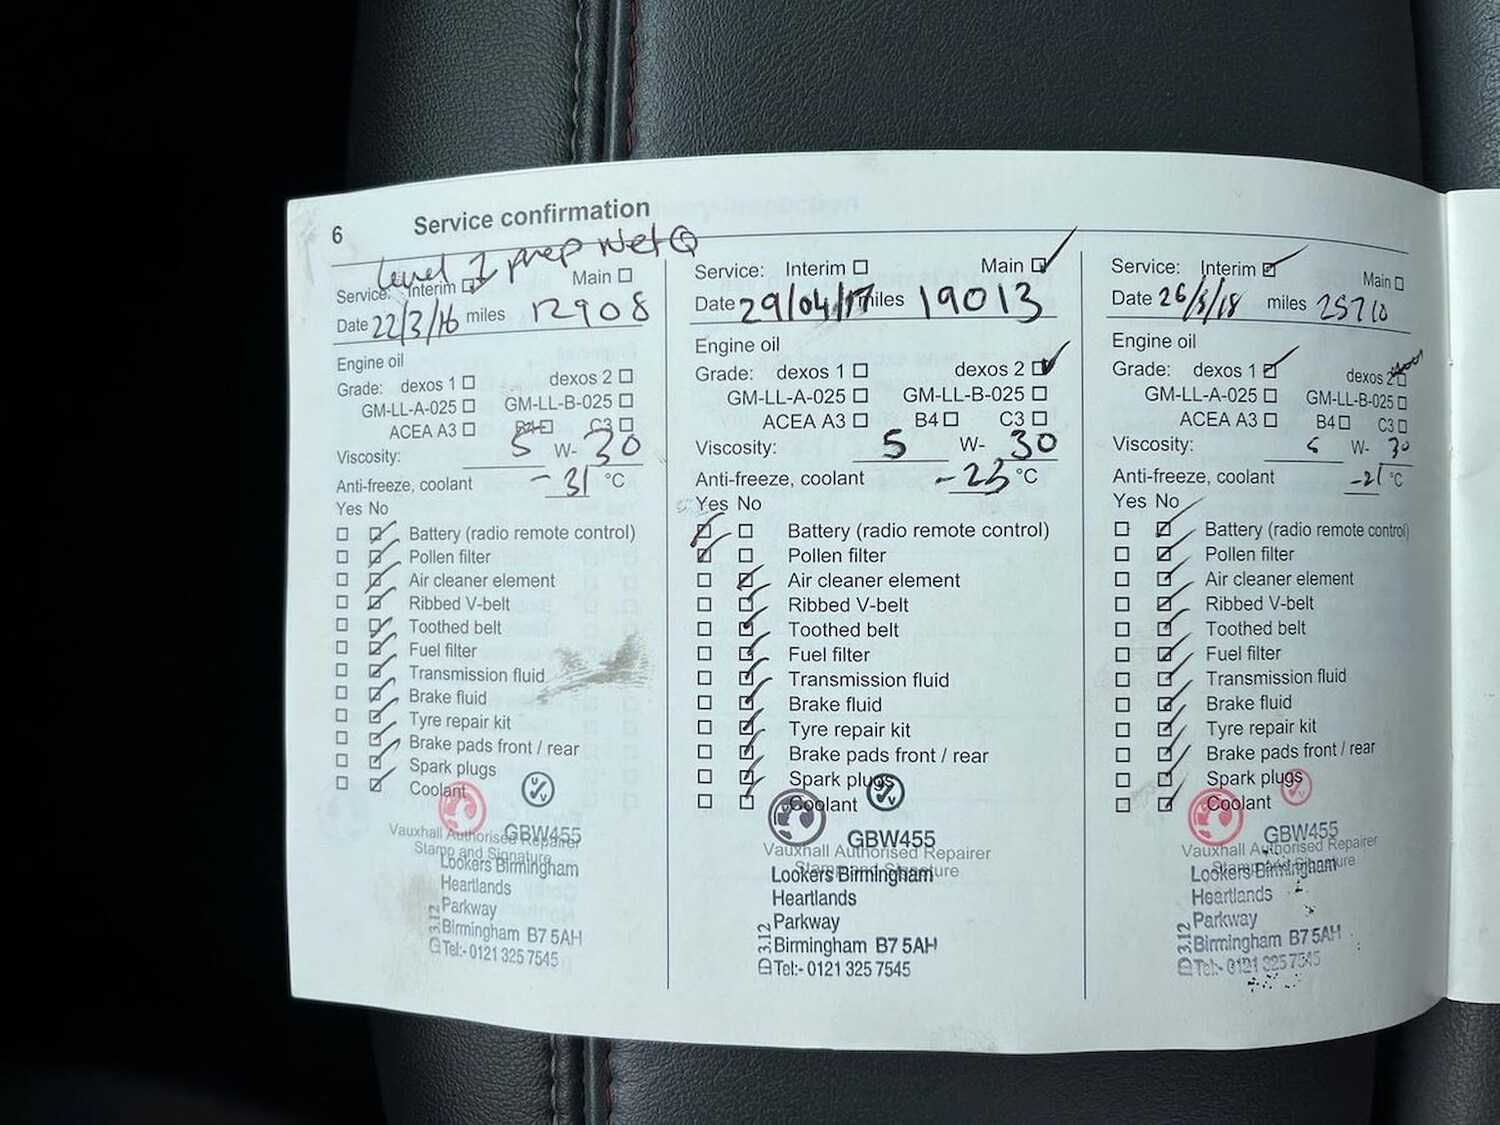 6 Service confirmation
Level 1 prep Net Q
Service: Interim Main
Date 22/3/16 miles 12908
Engine oil
Grade: dexos 1 dexos 2
GM-LL-A-025 GM-LL-B-025
ACEA A3 B4 C3
Viscosity: 5 W- 30
Anti-freeze, coolant -31 °C
Yes No
Battery (radio remote control)
Pollen filter
Air cleaner element
Ribbed V-belt
Toothed belt
Fuel filter
Transmission fluid
Brake fluid
Tyre repair kit
Brake pads front / rear
Spark plugs
Coolant
GBW455
Vauxhall Authorised Repairer
Stamp and Signature
Lookers Birmingham
Heartlands
Parkway
Birmingham B7 5AH
Tel:- 0121 325 7545
3.12
Service: Interim Main
Date 29/04/17 miles 19013
Engine oil
Grade: dexos 1 dexos 2
GM-LL-A-025 GM-LL-B-025
ACEA A3 B4 C3
Viscosity: 5 W- 30
Anti-freeze, coolant -25 °C
Yes No
Battery (radio remote control)
Pollen filter
Air cleaner element
Ribbed V-belt
Toothed belt
Fuel filter
Transmission fluid
Brake fluid
Tyre repair kit
Brake pads front / rear
Spark plugs
Coolant
GBW455
Vauxhall Authorised Repairer
Stamp and Signature
Lookers Birmingham
Heartlands
Parkway
Birmingham B7 5AH
Tel:- 0121 325 7545
3.12
Service: Interim Main
Date 26/5/18 miles 25710
Engine oil
Grade: dexos 1 dexos 2
GM-LL-A-025 GM-LL-B-025
ACEA A3 B4 C3
Viscosity: 5 W- 30
Anti-freeze, coolant -21 °C
Yes No
Battery (radio remote control)
Pollen filter
Air cleaner element
Ribbed V-belt
Toothed belt
Fuel filter
Transmission fluid
Brake fluid
Tyre repair kit
Brake pads front / rear
Spark plugs
Coolant
GBW455
Vauxhall Authorised Repairer
Stamp and Signature
Lookers Birmingham
Heartlands
Parkway
Birmingham B7 5AH
Tel:- 0121 325 7545
3.12